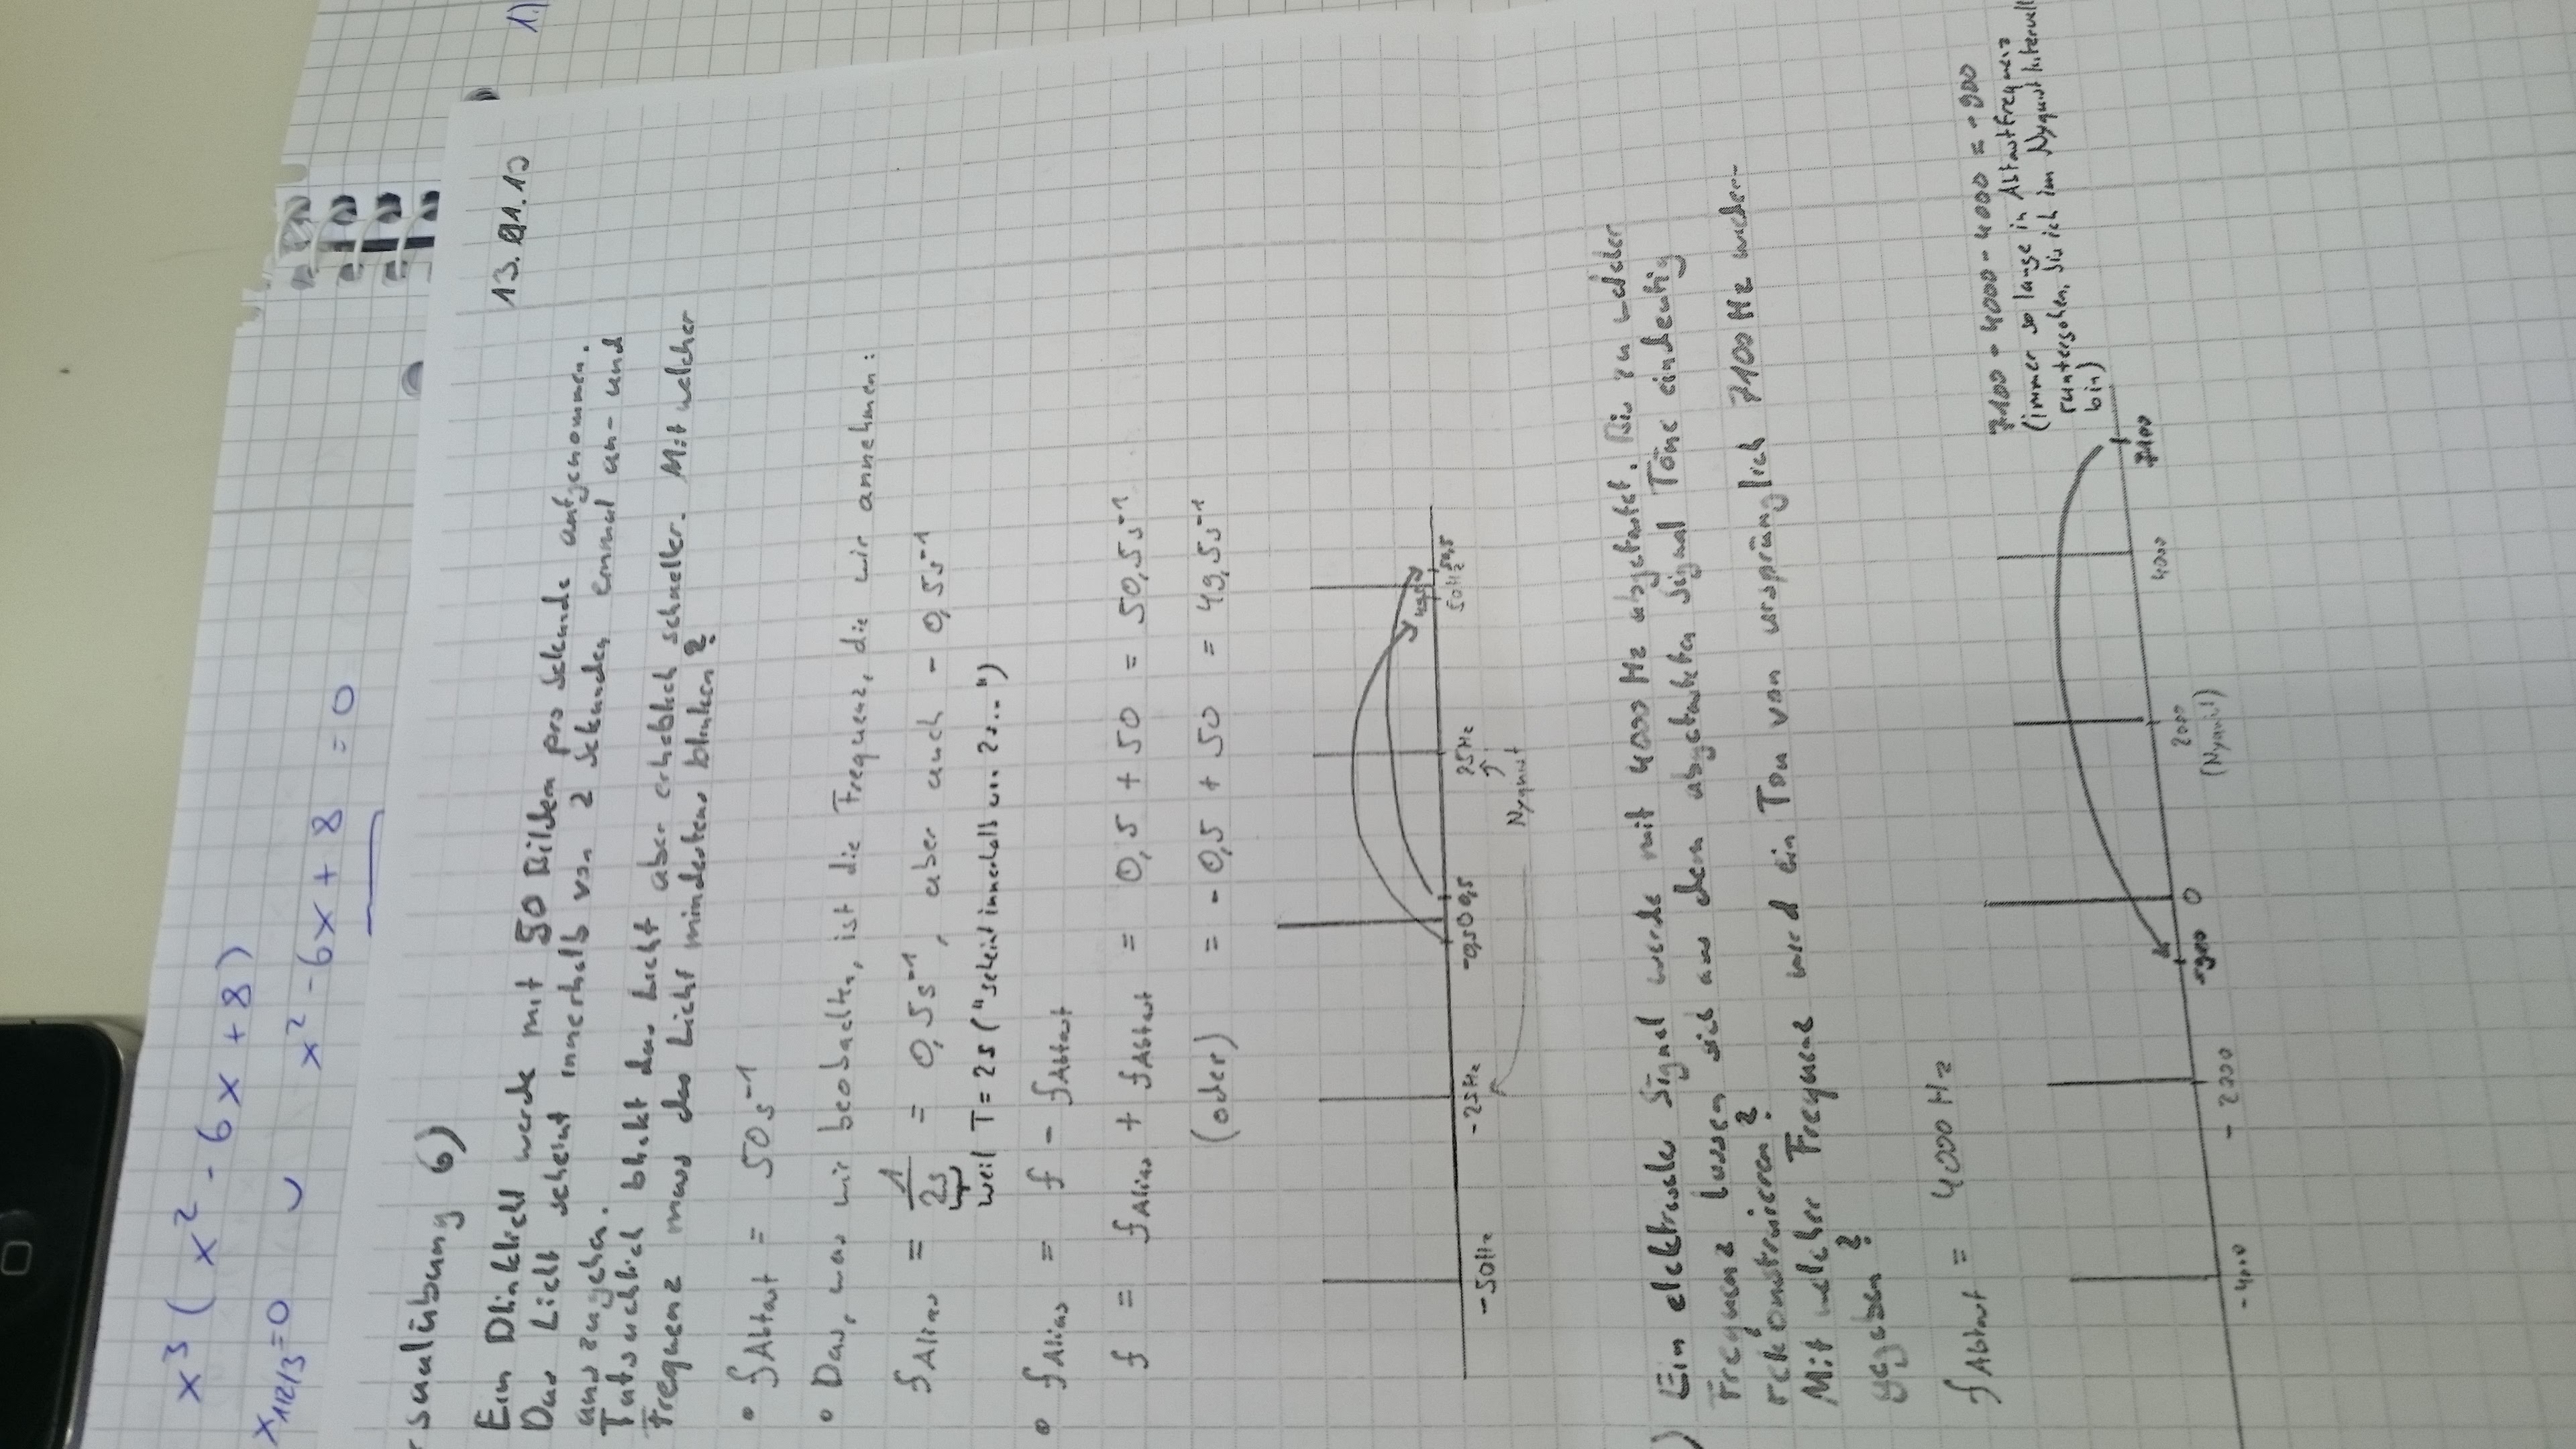 1.)
x³ ( x² - 6x + 8)
x1/2/3 = 0 ∪ x² - 6x + 8 = 0
13.01.10
saalübung 6)
Ein Blinklicht werde mit 50 Bildern pro Sekunde aufgenommen.
Das Licht scheint innerhalb von 2 Sekunden einmal an- und
auszugehen.
Tatsächlich blinkt das Licht aber erheblich schneller. Mit welcher
Frequenz muss das Licht mindestens blinken?
• fAbtast = 50s⁻¹
• Das, was wir beobachten, ist die Frequenz, die wir annehmen:
fAlias = 1/2s = 0,5s⁻¹, aber auch - 0,5s⁻¹
weil T = 2s ("scheint innerhalb von 2s...")
• fAlias = f - fAbtast
f = fAlias + fAbtast = 0,5 + 50 = 50,5s⁻¹
(oder) = - 0,5 + 50 = 49,5s⁻¹
49,5
-50Hz -25Hz -0,5 0 0,5 25Hz 50Hz 50,5
↑
Nyquist
) Ein elektrisches Signal werde mit 4000 Hz abgetastet. Bis zu welcher
Frequenz lassen sich aus dem abgetasteten Signal Töne eindeutig
rekonstruieren?
Mit welcher Frequenz wird ein Ton von ursprünglich 7100 Hz wieder-
gegeben?
fAbtast = 4000 Hz
7100 - 4000 - 4000 = -900
(immer so lange in Abtastfrequenz
runtergehen, bis ich im Nyquist Intervall
bin)
-4000 -2000 -900 0 2000 4000 7100
(Nyquist)